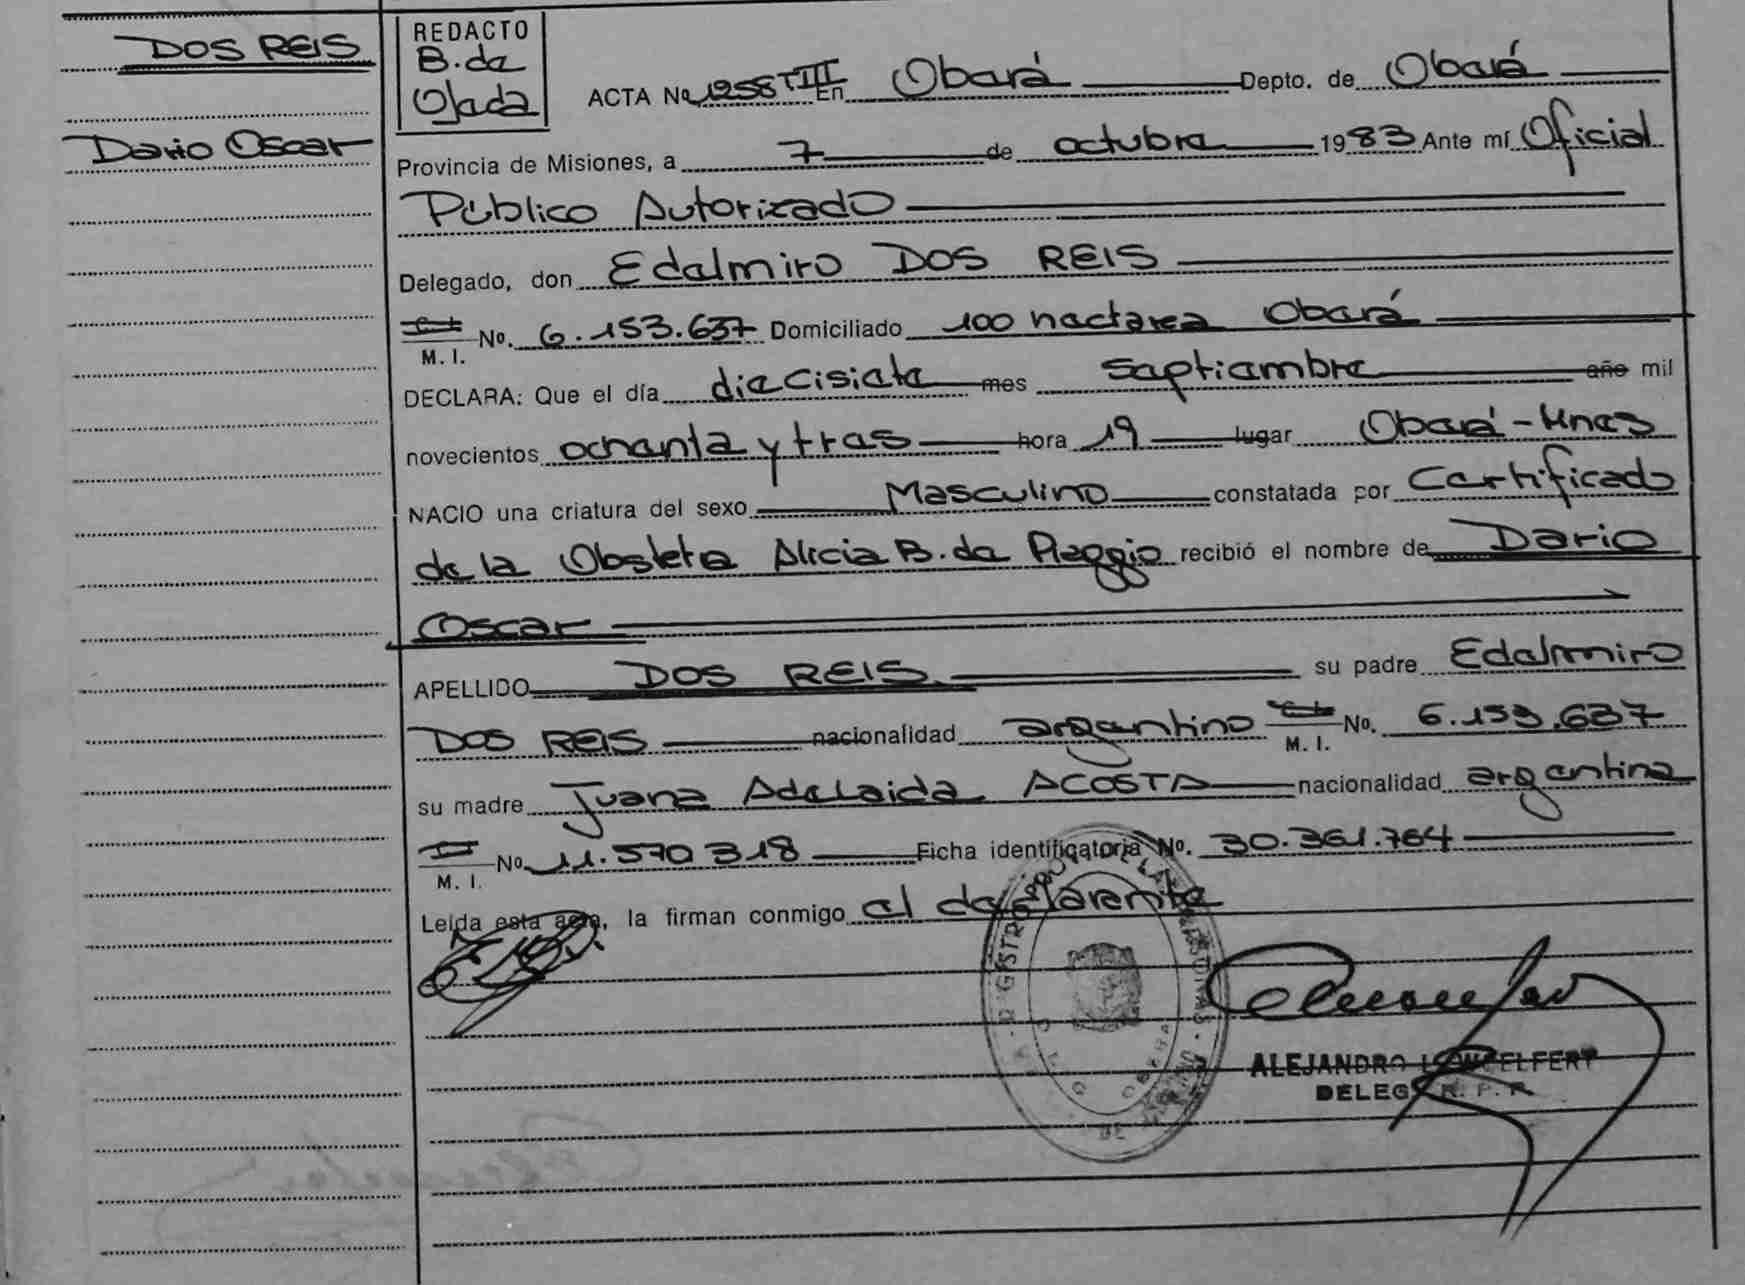 DOS REIS
Dario Oscar
REDACTO
B. de
Ojeda
ACTA No 1258 T III En Oberá Depto. de Oberá
Provincia de Misiones, a 7 de octubre 1983 Ante mí Oficial
Público Autorizado
Delegado, don Edalmiro DOS REIS
M. I. No. 6.153.637 Domiciliado 100 hectarea Oberá
DECLARA: Que el día diecisiete mes septiembre año mil
novecientos ochenta y tres hora 19 lugar Oberá - Mnes
NACIO una criatura del sexo Masculino constatada por Certificado
de la Obsteta Alicia B. de Reggio recibió el nombre de Dario
Oscar
APELLIDO DOS REIS. su padre Edalmiro
DOS REIS nacionalidad argentino M. I. No. 6.153.637
su madre Juana Adelaida ACOSTA nacionalidad argentina
M. I. No 11.570 318 Ficha identificatoria No. 30.361.764
Leída esta acta, la firman conmigo el declarente
ALEJANDRO
DELEG. R. P. P.